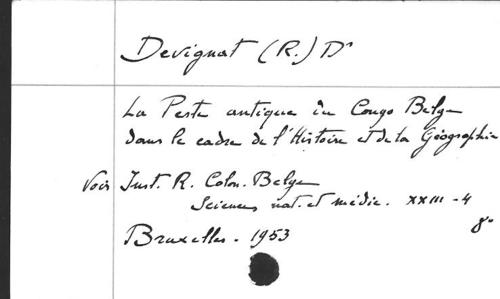 Devignat (R.) Dr
La Peste antique du Congo Belge
dans le cadre de l'Histoire et de la Géographie
Voir Inst. R. Colon. Belge
Sciences nat. et médic. XXIII - 4
8°
Bruxelles - 1953